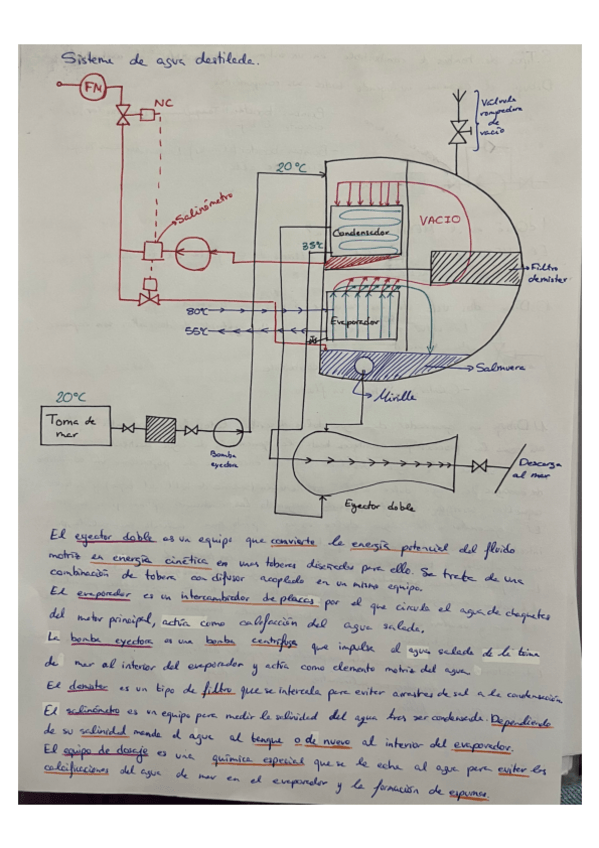 Sistema de agua destilada.
FN
NC
Válvula
rompedora
de
vacío
20°C
Salinómetro
VACIO
Condensador
35°C
Filtro
demister
80°C
Evaporador
55°C
Salmuera
Mirilla
20°C
Toma de
mar
Bomba
eyectora
Descarga
al mar
Eyector doble
El eyector doble es un equipo que convierte la energía potencial del fluido
motriz en energía cinética en unas toberas diseñadas para ello. Se trata de una
combinación de tobera con difusor acoplado en un mismo equipo.
El evaporador es un intercambiador de placas por el que circula el agua de chaquetas
del motor principal, actúa como calefacción del agua salada.
La bomba eyectora es una bomba centrífuga que impulsa el agua salada de la toma
de mar al interior del evaporador y actúa como elemento motriz del agua.
El demister es un tipo de filtro que se intercala para evitar arrastres de sal a la condensación.
El salinómetro es un equipo para medir la salinidad del agua tras ser condensada. Dependiendo
de su salinidad manda el agua al tanque o de nuevo al interior del evaporador.
El equipo de dosaje es una química especial que se le echa al agua para evitar las
calcificaciones del agua de mar en el evaporador y la formación de espumas.